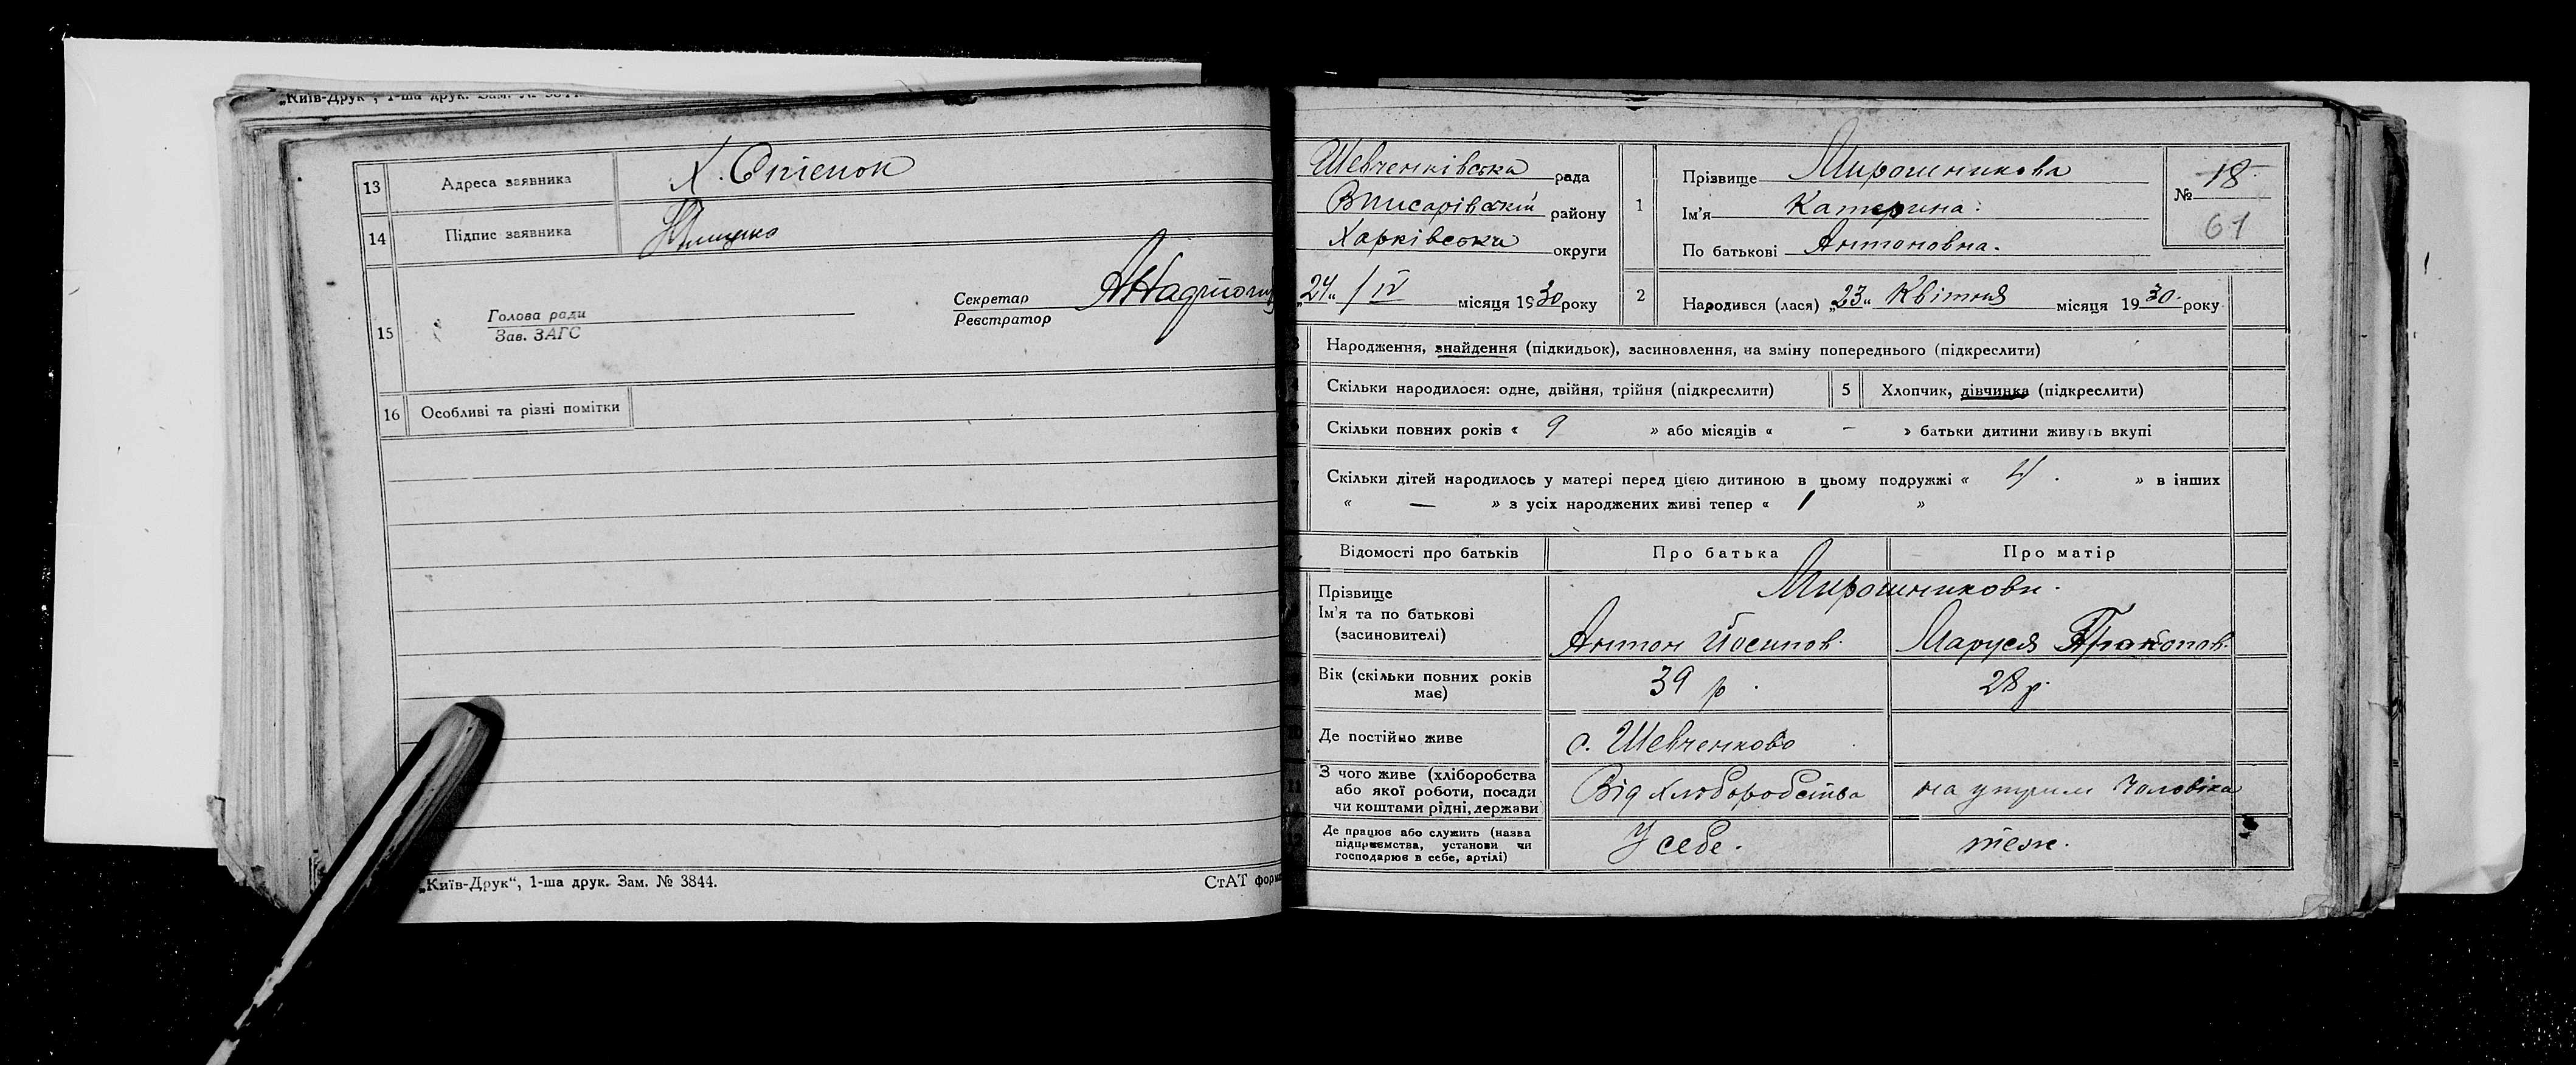 13 Адреса заявника Х. Степок
14 Підпис заявника
15 Голова ради Секретар
Зав. ЗАГС Реєстратор
16 Особливі та різні помітки
„Київ-Друк“, 1-ша друк. Зам. № 3844. СтАТ
Шевченківська рада
району
Харківська округи
„24“ / IV місяця 1930 року
1 Прізвище Мирошникова
Ім'я Катерина.
По батькові Антоновна.
№ 18
61
2 Народився (лася) „23“ Квітня місяця 1930. року
Народження, знайдення (підкидьок), засиновлення, на зміну попереднього (підкреслити)
Скільки народилося: одне, двійня, трійня (підкреслити) 5 Хлопчик, дівчинка (підкреслити)
Скільки повних років « 9 » або місяців « — » батьки дитини живуть вкупі
Скільки дітей народилось у матері перед цією дитиною в цьому подружжі « 4 . » в інших
« — » з усіх народжених живі тепер « 1 »
Відомості про батьків Про батька Про матір
Прізвище Мирошникови.
Ім'я та по батькові
(засиновителі) Антон Йосипов. Маруся Прокопов.
Вік (скільки повних років
має) 39 р. 28 р.
Де постійно живе с. Шевченково
З чого живе (хліборобства
або якої роботи, посади
чи коштами рідні, держави Від хліборобства на утрим чоловіка
Де працює або служить (назва
підприємства, установи чи
господарює в себе, артілі) У себе. теж.